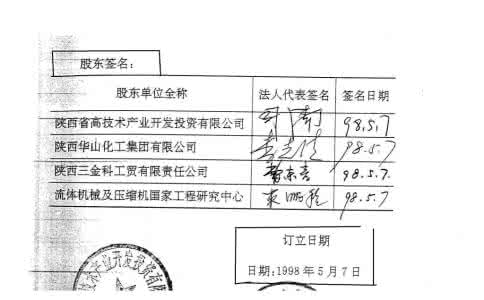 股东签名：
股东单位全称 法人代表签名 签名日期
陕西省高技术产业开发投资有限公司 98.5.7
陕西华山化工集团有限公司 98.5.7
陕西三金科工贸有限责任公司 98.5.7.
流体机械及压缩机国家工程研究中心 98.5.7
订立日期
日期:1998年5月7日
技术产业开发投资有限